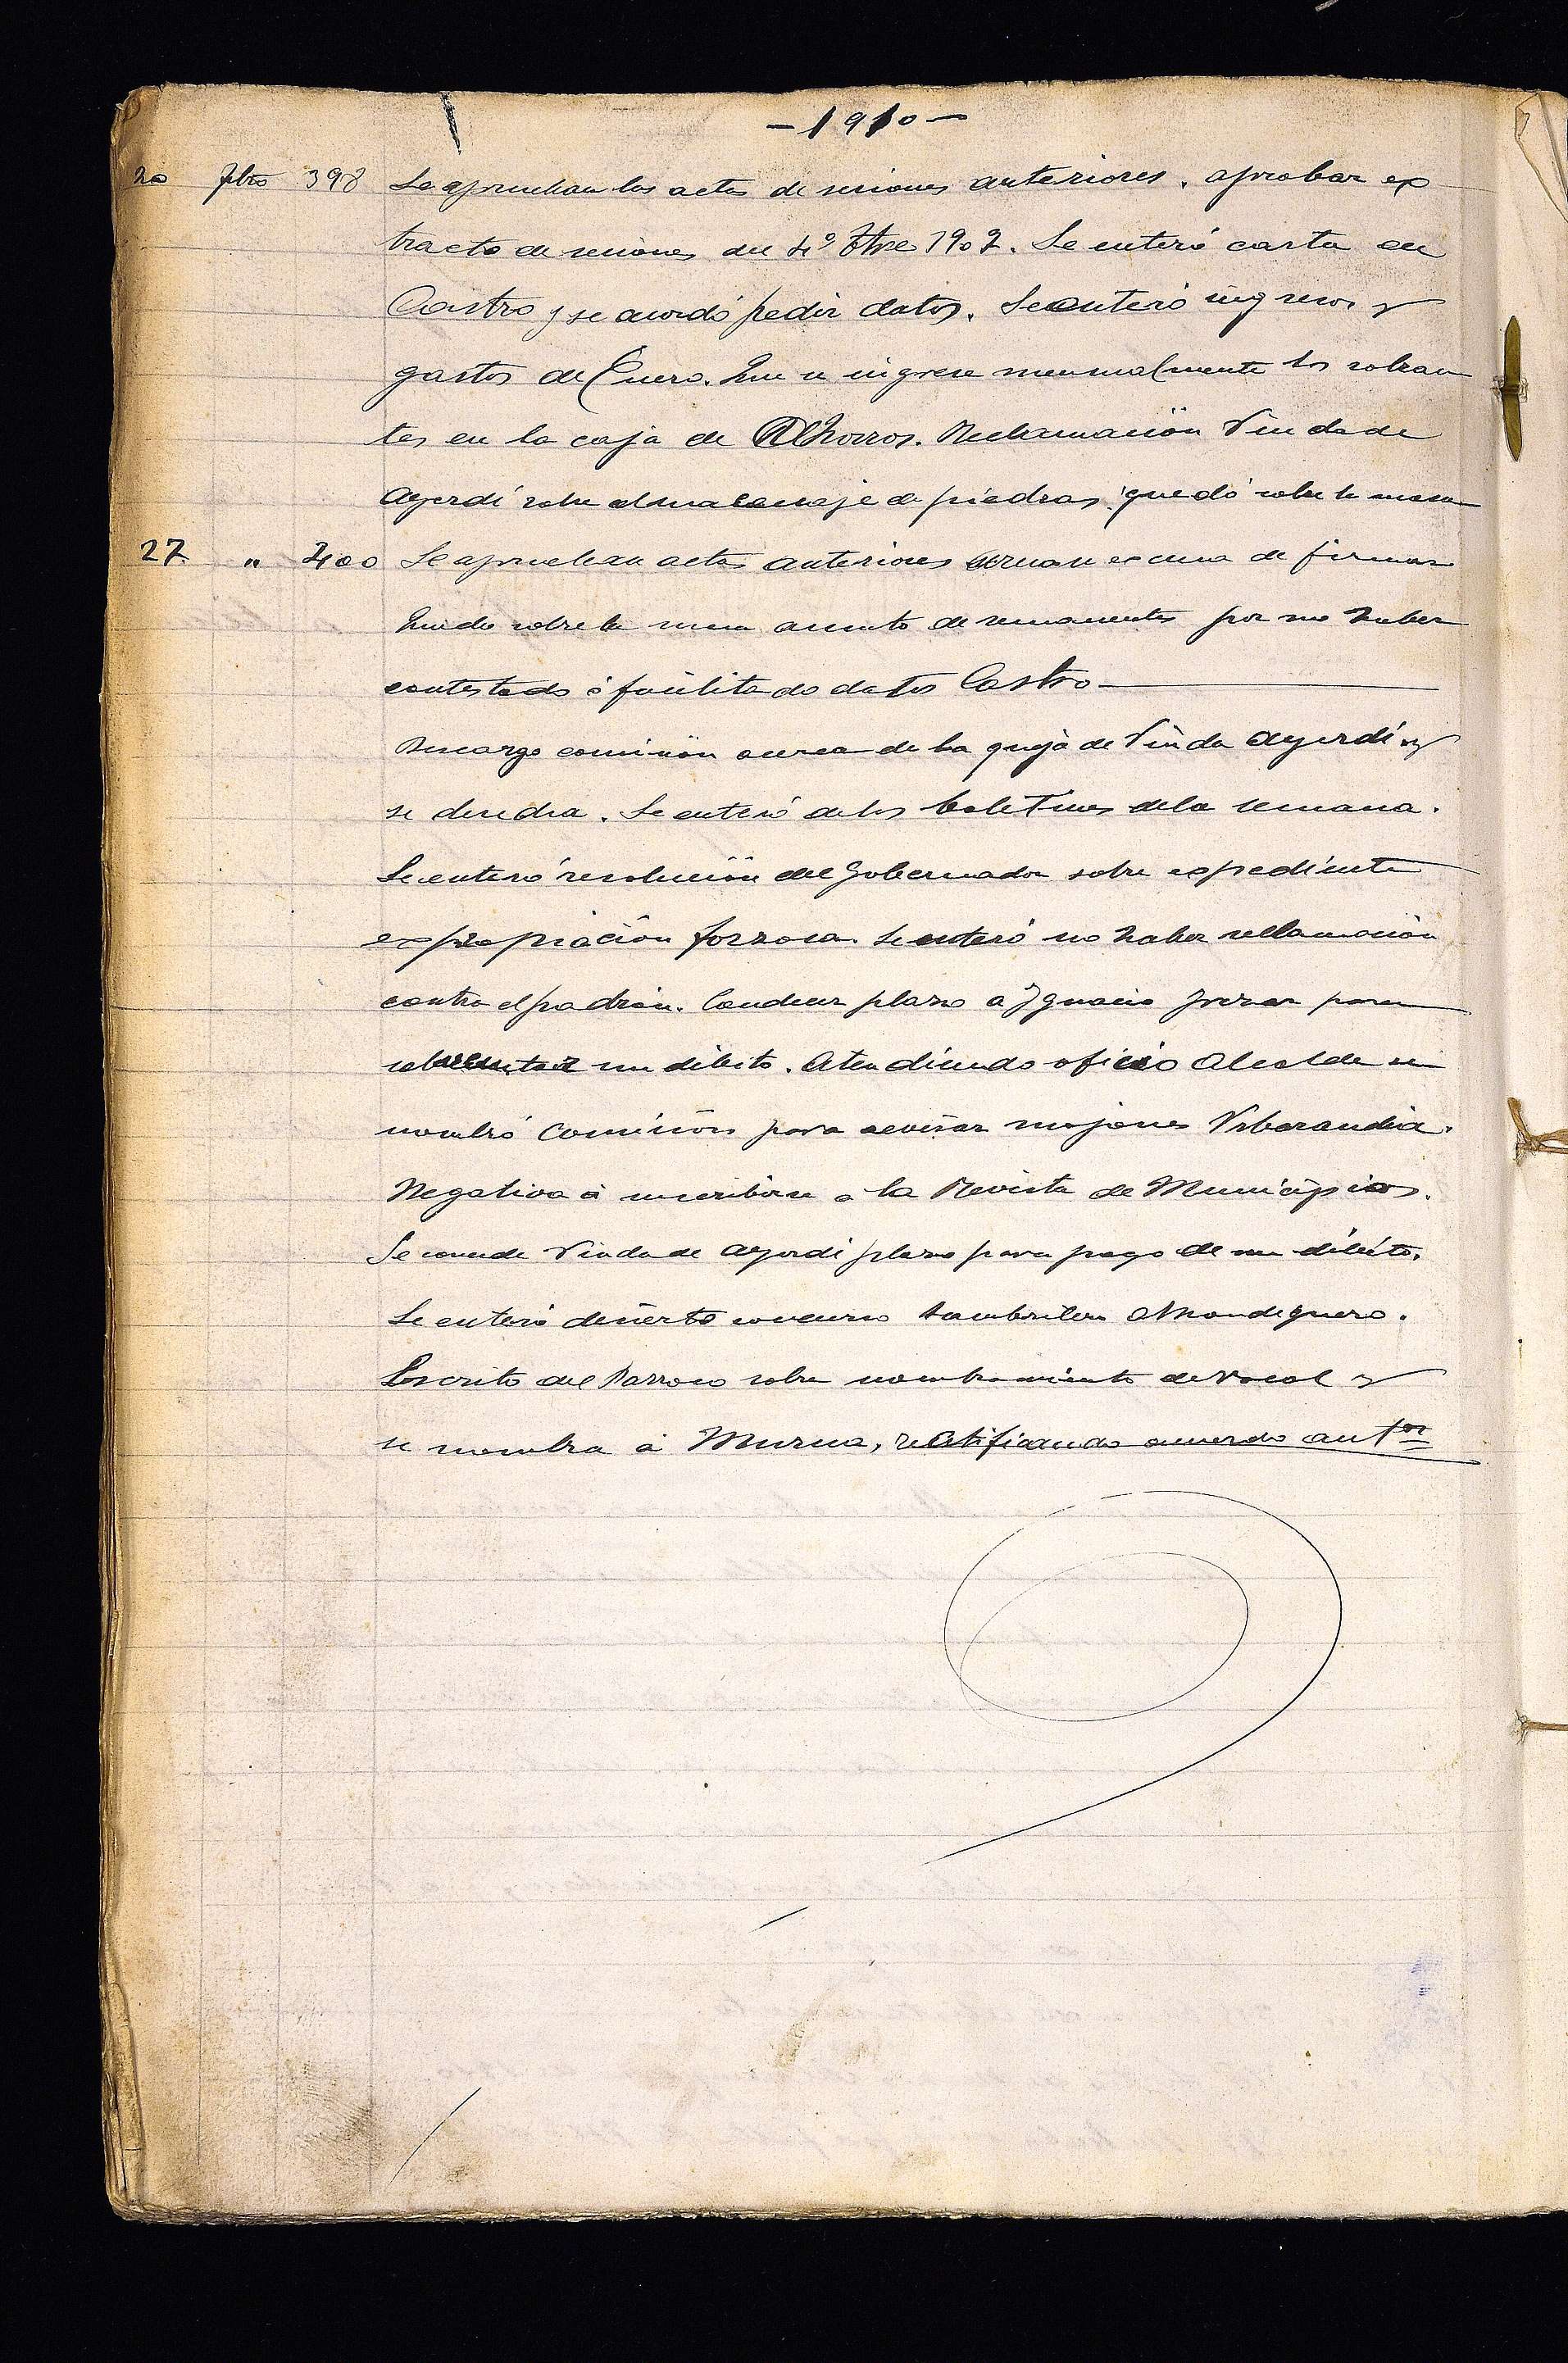 - 1910 -
20 fbro 398 Se aprueban las actas de sesiones anteriores. aprobar ex
tracto de sesiones del 4º Ttre 1909. Se enteró carta de
Castro y se acordó pedir datos. Se enteró ingresos y
gastos de Enero. Que se ingrese mensualmente los sobran
tes en la caja de Ahorros. Reclamación Viuda de
Ayerdi sobre almacenaje de piedras, quedó sobre la mesa
27 " 400 Se aprueban actas anteriores de firmas
Quedo sobre la mesa asunto de remanentes por no haber
contestado ó facilitado datos Castro
Encargo comisión acerca de la queja de Viuda Ayerdi y
se . Se enteró de los boletines de la semana.
Se enteró resolución del Gobernador sobre expediente
expropiación forzosa. Se enteró no haber reclamación
contra el padrón. Conceder plazo a Ygnacio para
un débito. Atendiendo oficio Alcalde se
nombró Comisión para revisar mojones
Negativa á suscribirse a la Revista de Municipios.
Se concede Viuda de Ayerdi plazo para pago de su débito.
Se enteró desierto concurso Alhondiguero.
Escrito del Parroco sobre nombramiento de Vocal y
se nombra á Murua, ratificando acuerdo antor